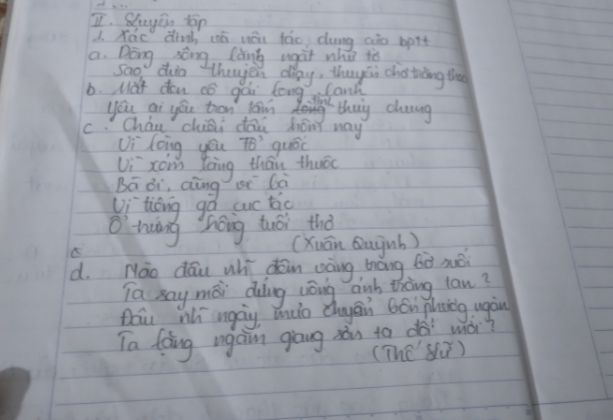 II. Luyện tập
1. Xác định và nêu tác dụng của bptt
a. Dòng sông lẳng ngặt như tờ
Sao đưa thuyền chạy, thuyền chờ trăng theo
b. Mắt đen cô gái long lanh
Yêu ai yêu trọn tấm tình thủy chung
c. Cháu chiến đấu hôm nay
Vì lòng yêu Tổ quốc
Vì xóm làng thân thuộc
Bà ơi, cũng vì bà
Vì tiếng gà cục tác
Ổ trứng hồng tuổi thơ
(Xuân Quỳnh)
d. Nào đâu những đêm vàng bên bờ suối
Ta say mồi đứng uống ánh trăng tan?
Đâu những ngày mưa chuyển bốn phương ngàn
Ta lặng ngắm giang sơn ta đổi mới?
(Thế Lữ)